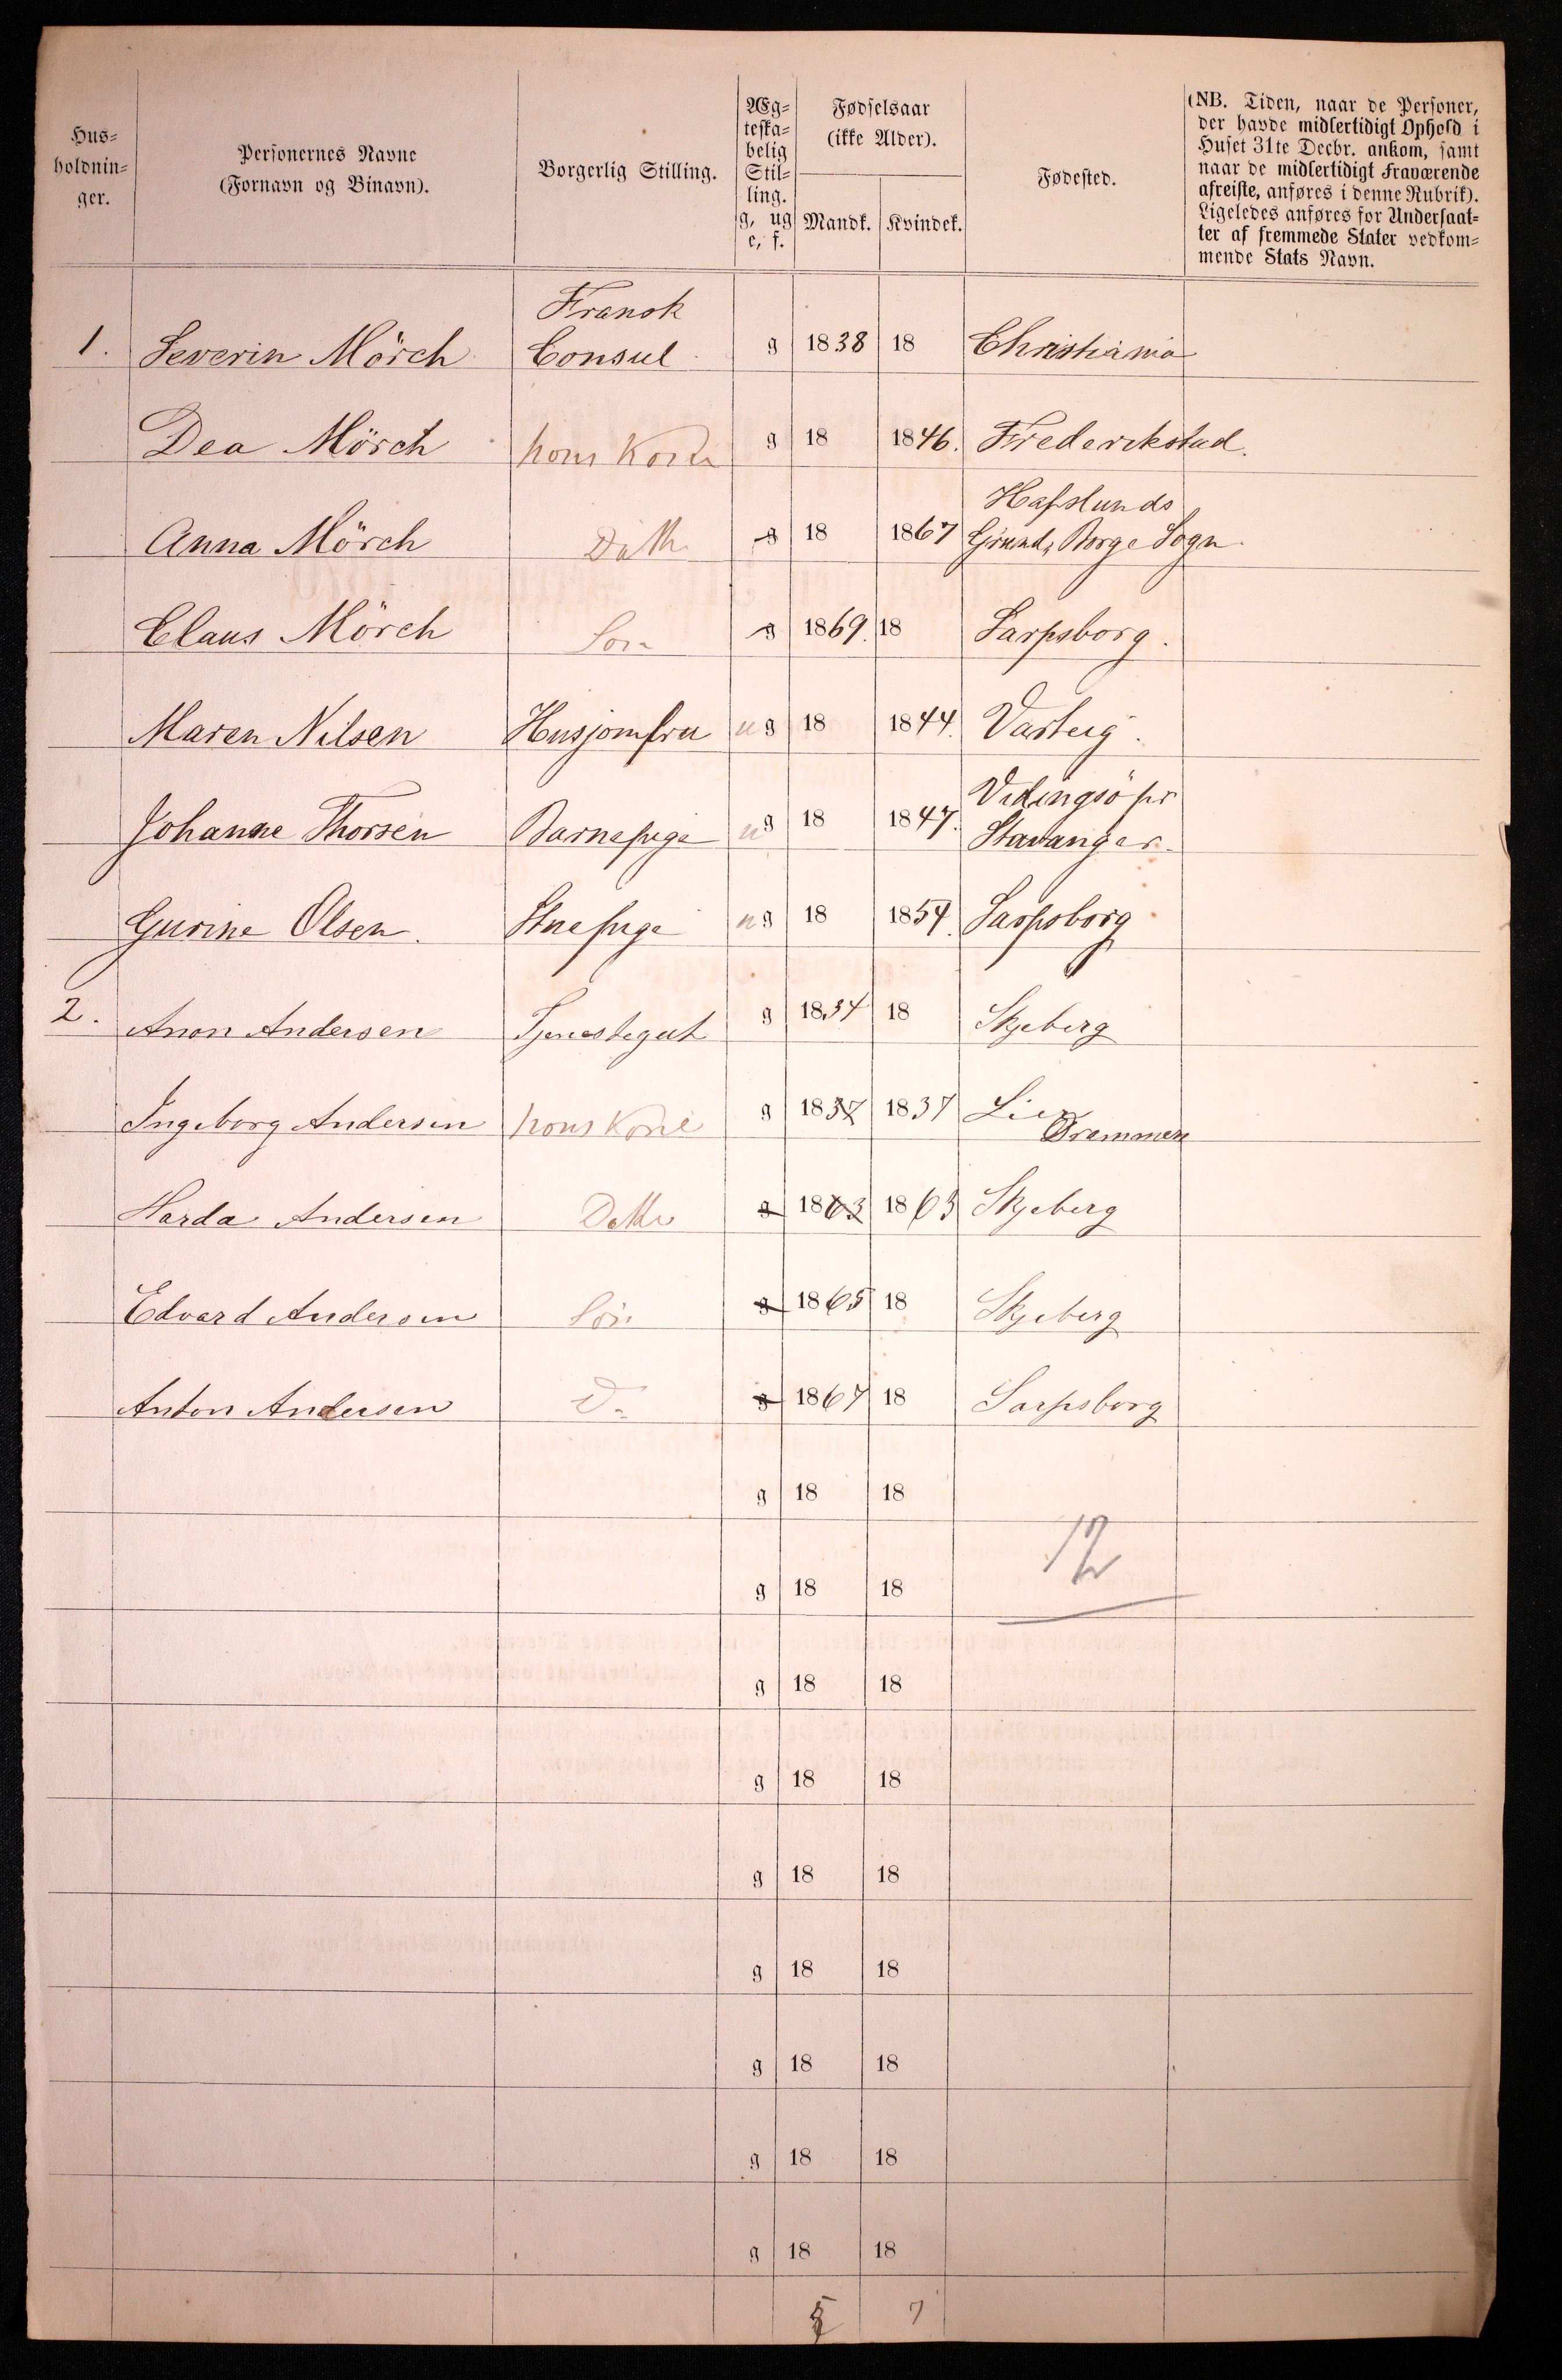 Hus-
holdnin-
ger.
Personernes Navne
(Fornavn og Binavn).
Borgerlig Stilling.
Æg-
teska-
belig
Stil-
ling.
g, ug
e, f.
Fødselsaar
(ikke Alder).
Mandk. Kvindek.
Fødested.
(NB. Tiden, naar de Personer,
der havde midlertidigt Ophold i
Huset 31te Decbr. ankom, samt
naar de midlertidigt Fraværende
afreiste, anføres i denne Rubrik).
Ligeledes anføres for Undersaat-
ter af fremmede Stater vedkom-
mende Stats Navn.
Fransk
1. Severin Mörch Consul g 1838 18 Christiania
Dea Mörch hans Kone g 18 1846. Frederikstad.
Hafslunds
Anna Mörch Datter g 18 1867 Grund, Borge Sogn.
Claus Mörch Søn g 1869. 18 Sarpsborg.
Maren Nilsen Husjomfru ug 18 1844. Varteig.
Vidingsö pr
Johanne Thorsen Barnepige ug 18 1847. Stavanger.
Gurine Olsen. Stuepige ug 18 1854. Sarpsborg
2. Anon Andersen Tjenestegut g 1834 18 Skjeberg
Ingeborg Andersen hans Kone g 1837 1837 Lier
Drammen
Harda Andersen Datter g 1863 1863 Skjeberg
Edvard Andersen Søn g 1865 18 Skjeberg
Anton Andersen Do g 1867 18 Sarpsborg
g 18 18
12
g 18 18
g 18 18
g 18 18
g 18 18
g 18 18
g 18 18
g 18 18
g 18 18
5 7